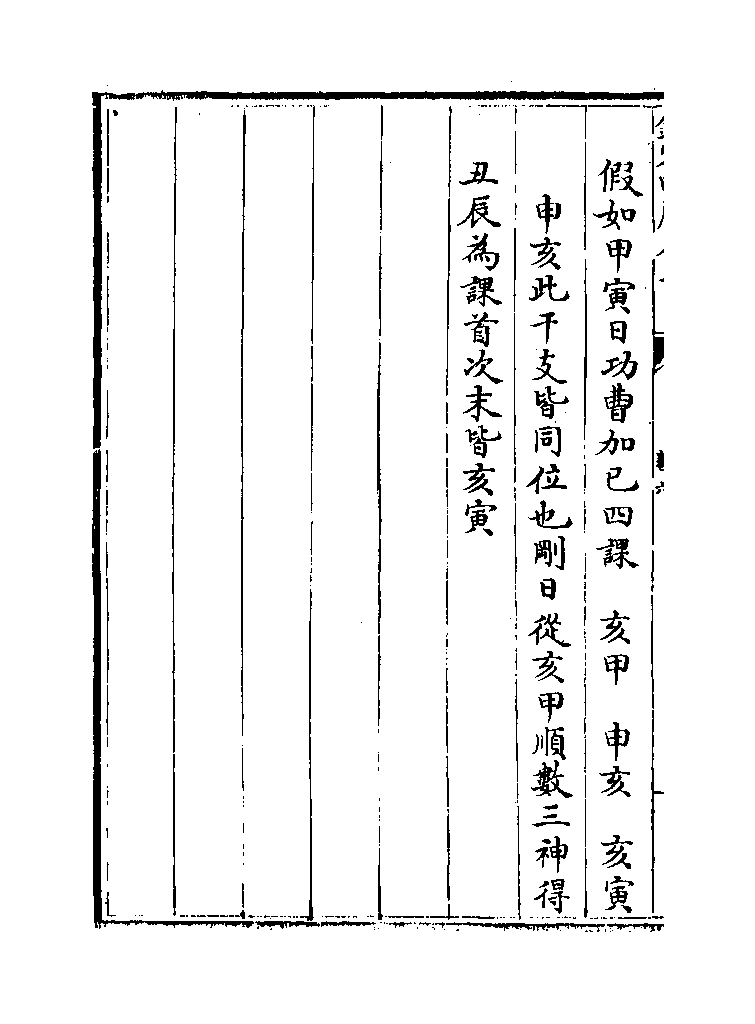 假如甲寅日功曹加已四課　亥甲　申亥　亥寅
申亥此干支皆同位也剛日從亥甲順數三神得
丑辰為課首次末皆亥寅